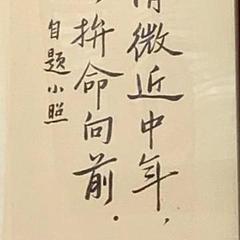 微近中年，
，拚命向前．
自题小照